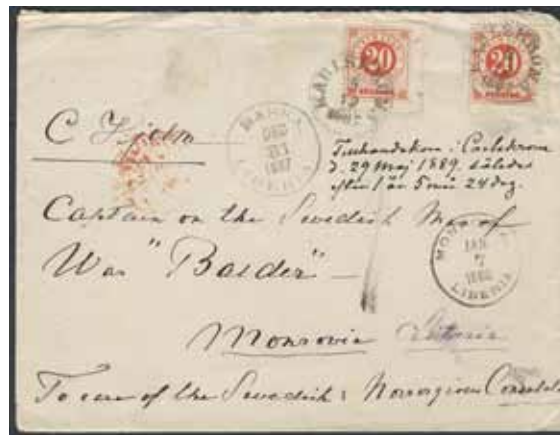 20
20
KARLSKRONA
MARKA
DEC
31
1887
LIBERIA
C
Tillhandakom i Carlskrona
d. 29 Maj 1889, således
efter 1 år 5 mån 24 dag.
Captain on the Swedish Man of
War "Balder" —
MON
JAN
7
1888
LIBERIA
Monrovia Liberia
To care of the Swedish & Norvegious Consulate